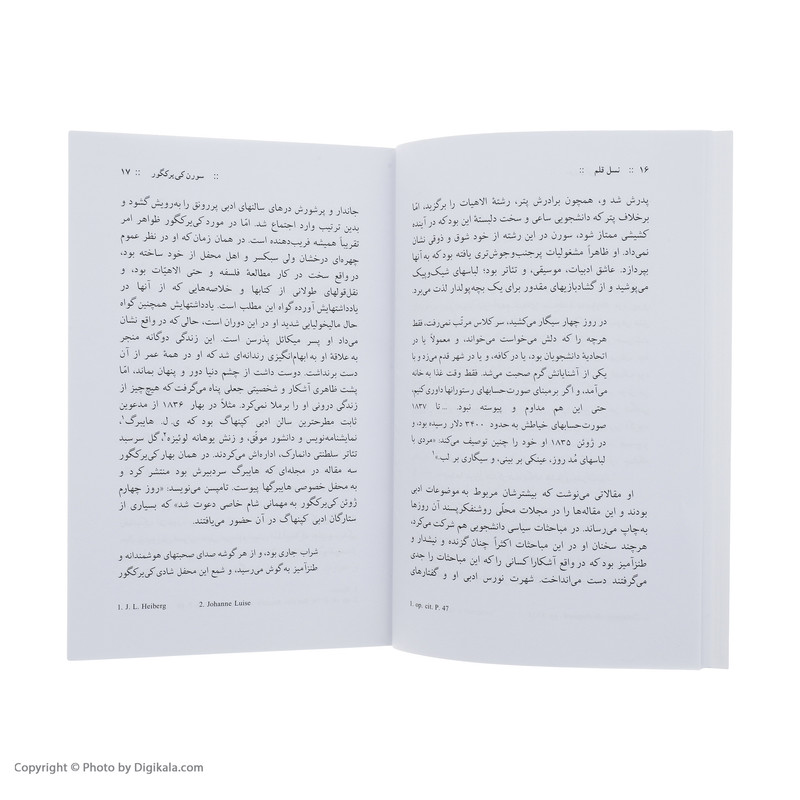 ۱۶ :: نسل قلم ::
پدرش شد و، همچون برادرش پتر، رشتهٔ الاهیات را برگزید. امّا
برخلاف پتر که دانشجویی ساعی و سخت دلبستهٔ این بود که در آینده
کشیشی ممتاز شود، سورن در این رشته از خود شوق و ذوقی نشان
نمی‌داد. او ظاهراً مشغولیات پرجنب‌وجوش‌تری یافته بود که به آنها
بپردازد. عاشق ادبیات، موسیقی، و تئاتر بود؛ لباسهای شیک‌وپیک
می‌پوشید و از گشادبازیهای مقدور برای یک بچه‌پولدار لذت می‌برد.
در روز چهار سیگار می‌کشید، سر کلاس مرتّب نمی‌رفت، فقط
هرچه را که دلش می‌خواست می‌خواند، و معمولاً یا در
اتحادیهٔ دانشجویان بود، یا در کافه، و یا در شهر قدم می‌زد و با
یکی از آشنایانش گرم صحبت می‌شد. فقط وقت غذا به خانه
می‌آمد، و اگر برمبنای صورت‌حسابهای رستورانها داوری کنیم،
حتی این هم مداوم و پیوسته نبود. ... تا ۱۸۳۷
صورت‌حسابهای خیاطش به حدود ۳۴۰۰ دلار رسیده بود، و
در ژوئن ۱۸۳۵ او خود را چنین توصیف می‌کند: «مردی با
لباسهای مُد روز، عینکی بر بینی، و سیگاری بر لب.»۱
او مقالاتی می‌نوشت که بیشترشان مربوط به موضوعات ادبی
بودند و این مقاله‌ها را در مجلات محلّی روشنفکرپسند آن روزها
به‌چاپ می‌رساند. در مباحثات سیاسی دانشجویی هم شرکت می‌کرد،
هرچند سخنان او در این مباحثات اکثراً چنان گزنده و نیشدار و
طنزآمیز بود که در واقع آشکارا کسانی را که این مباحثات را جدی
می‌گرفتند دست می‌انداخت. شهرت نورس ادبی او و گفتارهای
1. op. cit. P. 47
:: سورن کی‌یرکگور :: ۱۷
جاندار و پرشورش درهای سالنهای ادبی پررونق را به‌رویش گشود و
بدین ترتیب وارد اجتماع شد. امّا در مورد کی‌یرکگور ظواهر امر
تقریباً همیشه فریب‌دهنده است. در همان زمان که او در نظر عموم
چهره‌ای درخشان ولی سبکسر و اهل محفل از خود ساخته بود،
در واقع سخت در کار مطالعهٔ فلسفه و حتی الاهیّات بود، و
نقل‌قولهای طولانی از کتابها و خلاصه‌هایی که از آنها در
یادداشتهایش آورده گواه این مطلب است. یادداشتهایش همچنین گواه
حال مالیخولیایی شدید او در این دوران است، حالی که در واقع نشان
می‌داد او پسر میکائل پدرسن است. این زندگی دوگانه منجر
به علاقهٔ او به ابهام‌انگیزی رندانه‌ای شد که او در همهٔ عمر از آن
دست برنداشت. دوست داشت از چشم دنیا دور و پنهان بماند، امّا
پشت ظاهری آشکار و شخصیتی جعلی پناه می‌گرفت که هیچ‌چیز از
زندگی درونی او را برملا نمی‌کرد. مثلاً در بهار ۱۸۳۶ از مدعوین
ثابت مطرح‌ترین سالن ادبی کپنهاگ بود که ی. ل. هایبرگ۱،
نمایشنامه‌نویس و دانشور موفّق، و زنش یوهانه لوئیزه۲، گل سرسبد
تئاتر سلطنتی دانمارک، اداره‌اش می‌کردند. در همان بهار کی‌یرکگور
سه مقاله در مجله‌ای که هایبرگ سردبیرش بود منتشر کرد و
به محفل خصوصی هایبرگها پیوست. تامپسن می‌نویسد: «روز چهارم
ژوئن کی‌یرکگور به مهمانی شام خاصی دعوت شد» که بسیاری از
ستارگان ادبی کپنهاگ در آن حضور می‌یافتند.
شراب جاری بود، و از هر گوشه صدای صحبتهای هوشمندانه و
طنزآمیز به‌گوش می‌رسید، و شمع این محفل شادی کی‌یرکگور
1. J. L. Heiberg 2. Johanne Luise
Copyright © Photo by Digikala.com